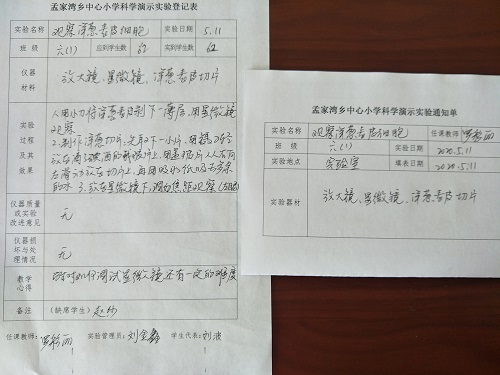 孟家湾乡中心小学科学演示实验登记表
实验名称 观察洋葱表皮细胞 实验日期 5.11
班级 六(1) 应到学生数 62 实到学生数 62
仪器材料 放大镜、显微镜、洋葱表皮切片
实验过程及其效果
1.用小刀将洋葱表皮剥下一薄层,用显微镜
观察
2.制作洋葱切片,先取下一小片,用镊子
放在滴
放在切片上,再用吸水纸吸去多余
的水 3.放在显微镜下,调为焦距观察
仪器质量或实验改进意见 无
仪器损坏与处理情况 无
教学心得 如何调试显微镜还有一定的难度
备注 (缺席学生)
任课教师: 实验管理员: 学生代表:刘波
孟家湾乡中心小学科学演示实验通知单
实验名称 观察洋葱表皮细胞 任课教师
班级 六(1) 实验日期 2020.5.11
实验地点 实验室 填表日期 2020.5.11
实验器材 放大镜、显微镜、洋葱表皮切片